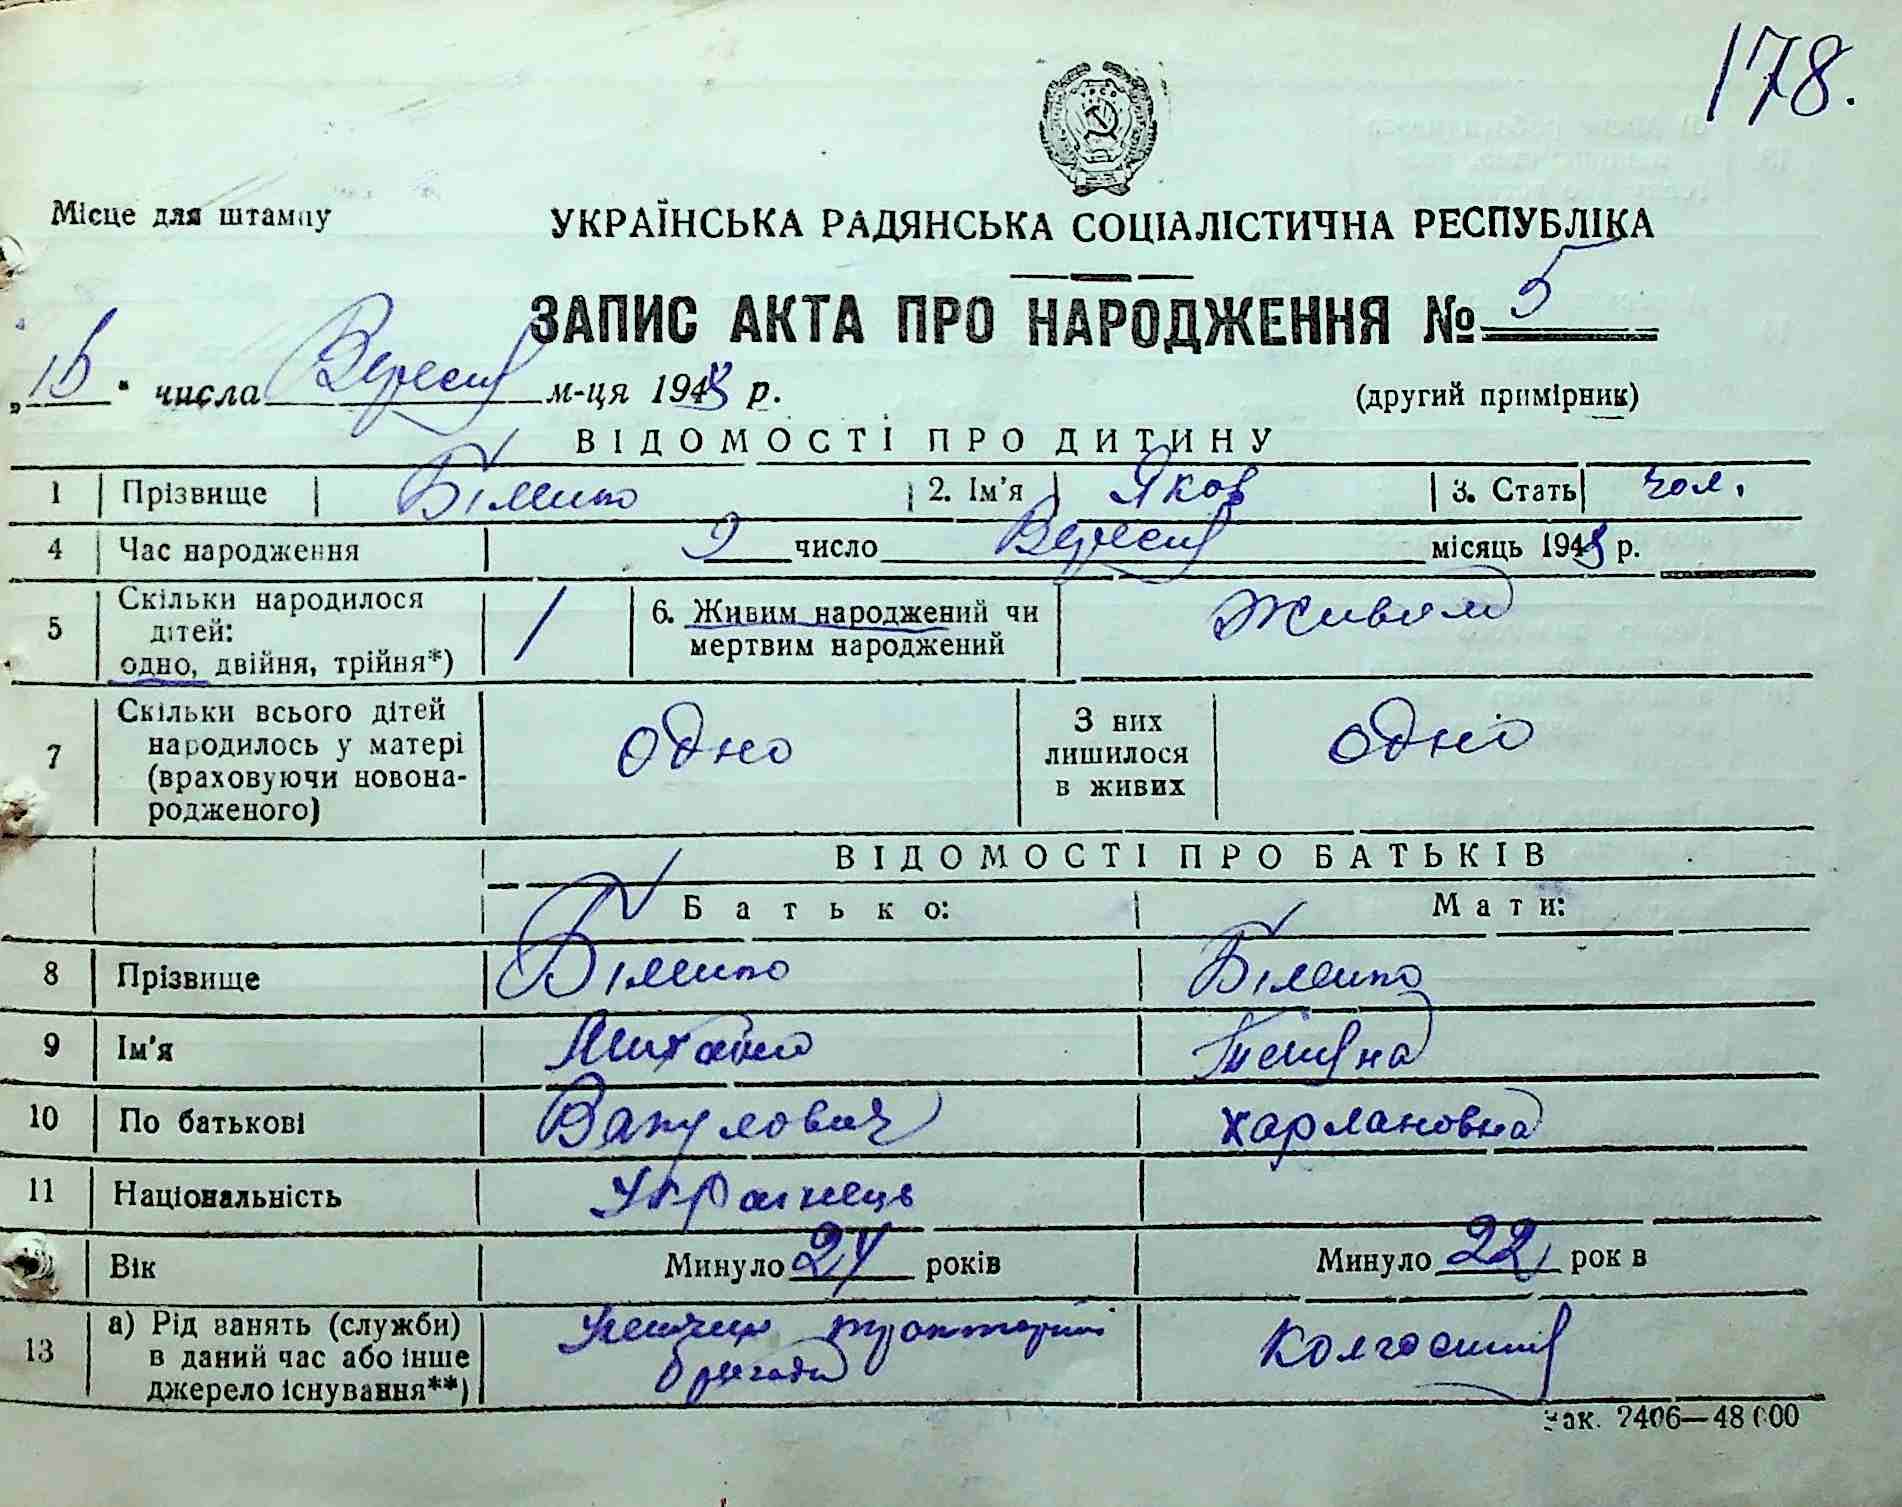 178.
Місце для штампу
УКРАЇНСЬКА РАДЯНСЬКА СОЦІАЛІСТИЧНА РЕСПУБЛІКА
ЗАПИС АКТА ПРО НАРОДЖЕННЯ № 5
числа Вересня м-ця 1943 р.
(другий примірник)
ВІДОМОСТІ ПРО ДИТИНУ
1 Прізвище 2. Ім'я Яков 3. Стать чол.
4 Час народження 9 число Вересня місяць 1943 р.
5 Скільки народилося дітей: одно, двійня, трійня*) 1 6. Живим народжений чи мертвим народжений Живим
7 Скільки всього дітей народилось у матері (враховуючи новонародженого) одно З них лишилося в живих одно
ВІДОМОСТІ ПРО БАТЬКІВ
Батько: Мати:
8 Прізвище
9 Ім'я Михайло Тетяна
10 По батькові Вакулович Харлановна
11 Національність Українець
Вік Минуло 24 років Минуло 22 рок в
13 а) Рід занять (служби) в даний час або інше джерело існування**) тракторної бригади Колгоспниця
Зак. 2406—48 000